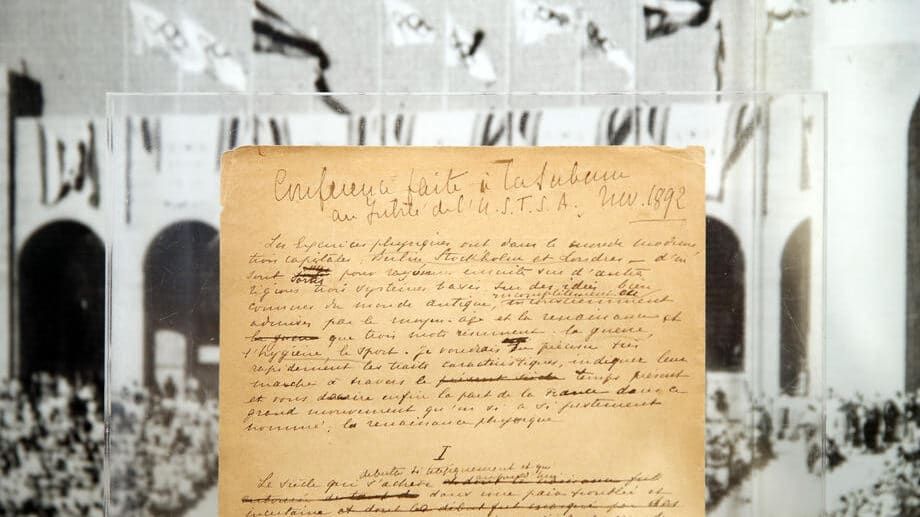 Conférence faite à la Sorbonne
au Jubilé de l'U.S.F.S.A. Nov. 1892
Les exercices physiques ont dans le monde moderne
trois capitales, Berlin, Stockholm et Londres — d'où
sont sortis pour
trois systèmes basés sur des idées bien
connues du monde antique incomplètement
admises par le moyen-âge et la renaissance et
que trois mots résument: la guerre,
l'hygiène, le sport. Je voudrais en préciser très
rapidement les traits caractéristiques, indiquer leur
marche à travers le temps présent
et vous enfin la part de la France dans ce
grand mouvement qu'on a si justement
nommé: la renaissance physique
I
débuté et qui
Le siècle qui s'achève
dans une paix troublée et
incertaine et dont le début fut marqué par